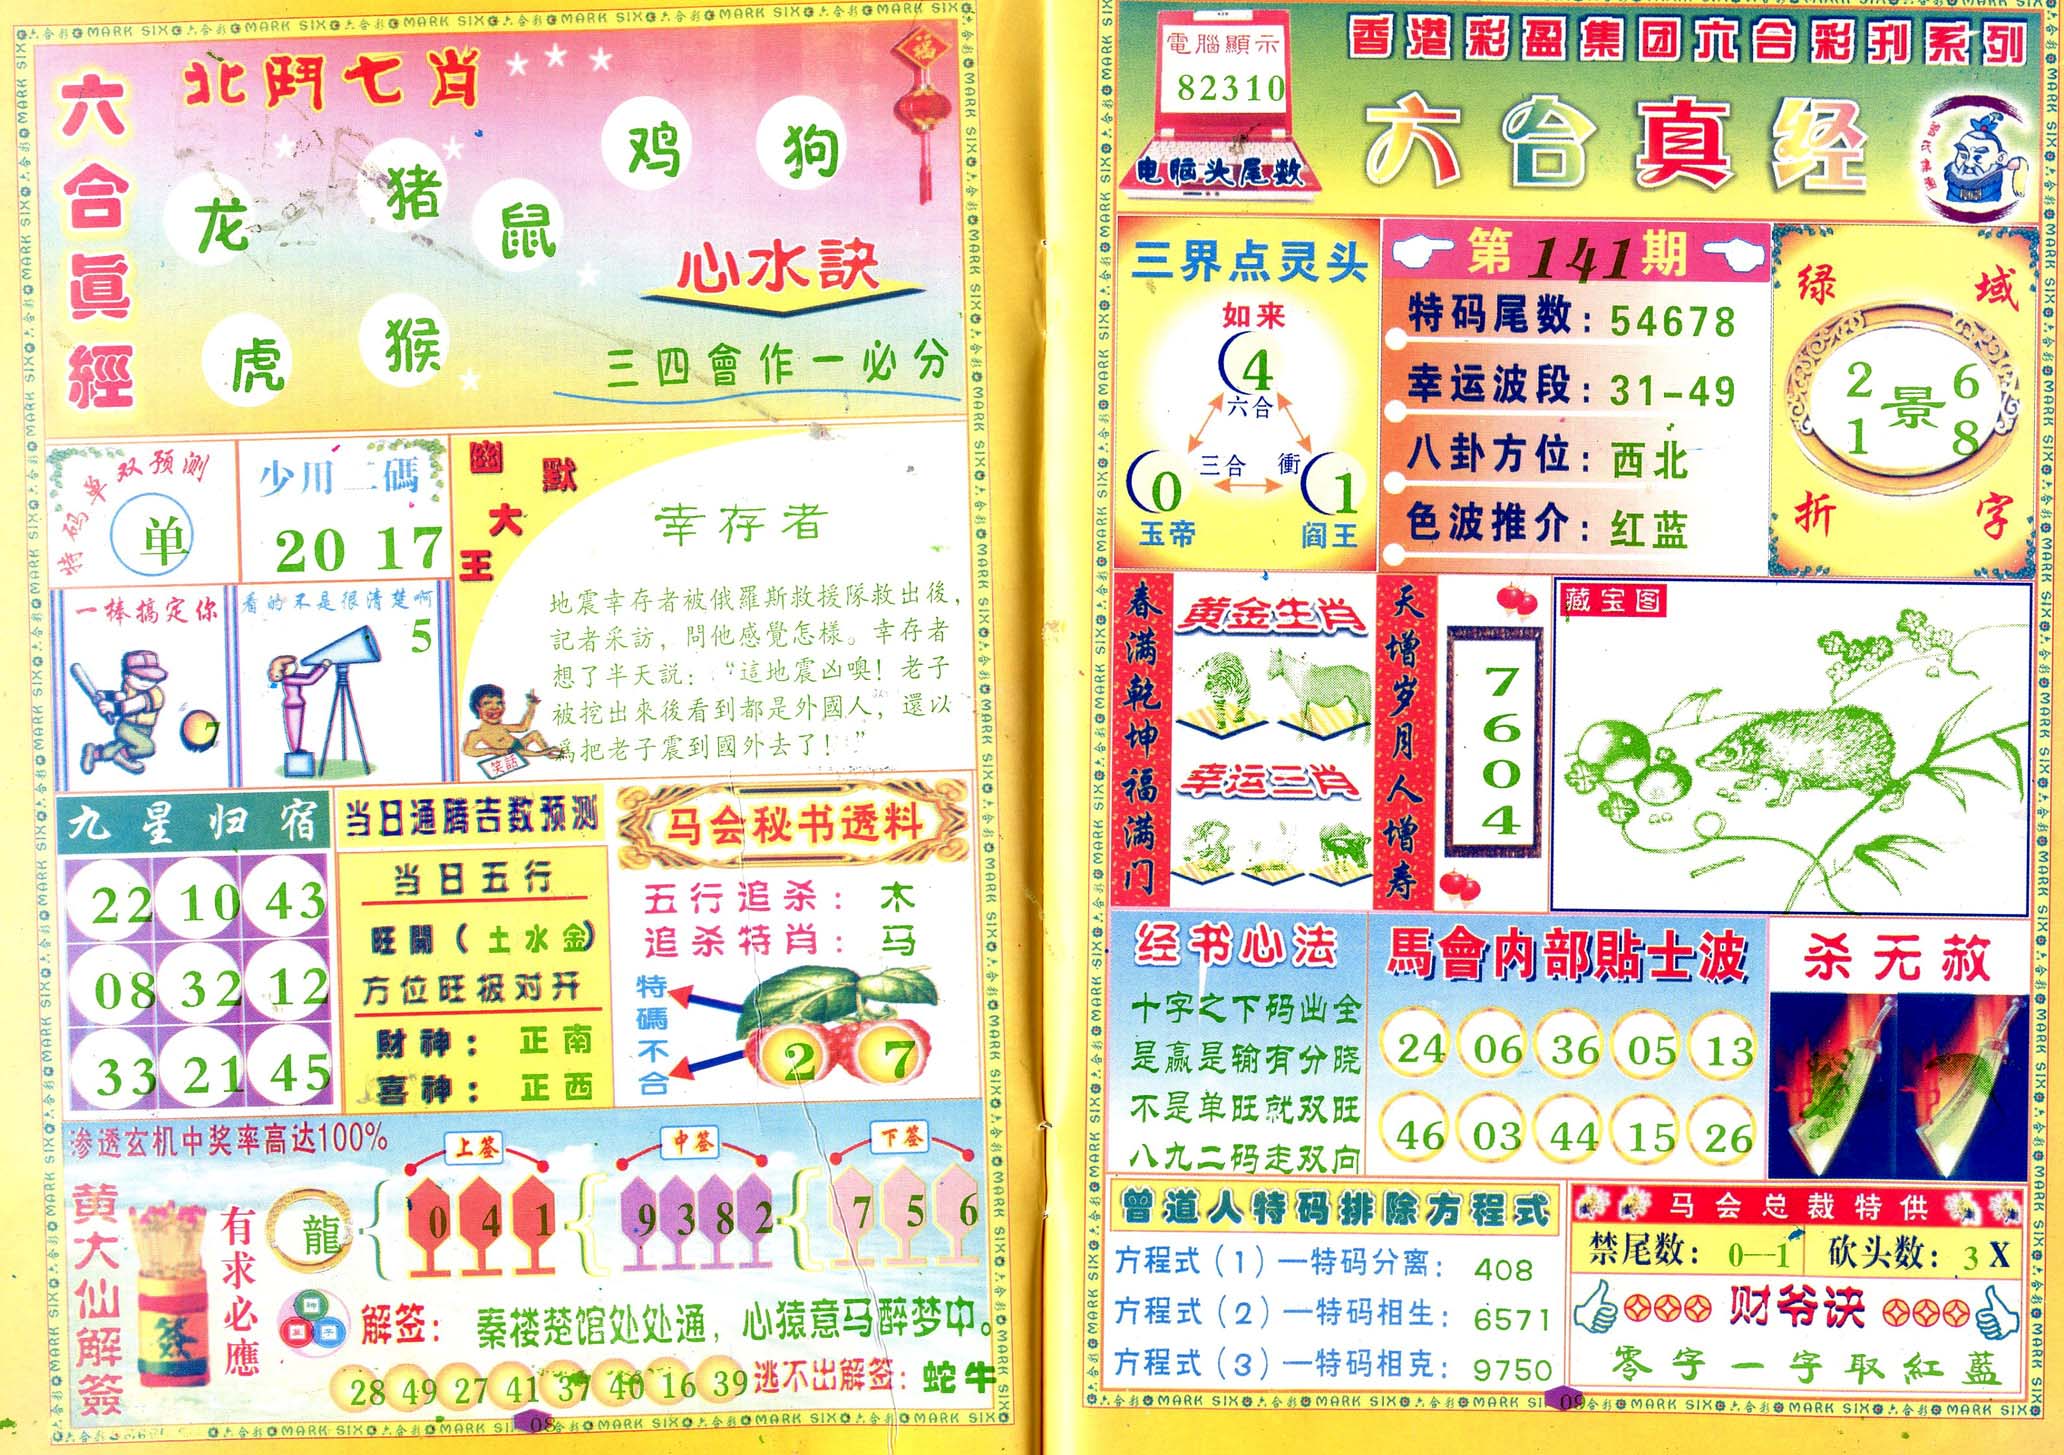 六合真經
北鬥七肖
龙
猪
鼠
鸡
狗
虎
猴
福
心水訣
三四會作一必分
特码单双预测
单
少川二碼
20 17
一棒搞定你
7
看的不是很清楚啊
5
幽默大王
幸存者
地震幸存者被俄羅斯救援隊救出後，
記者采訪，問他感覺怎樣。幸存者
想了半天説：“這地震凶噢！老子
被挖出來後看到都是外國人，還以
爲把老子震到國外去了！”
笑話
九星归宿
22 10 43
08 32 12
33 21 45
当日通腾吉数预测
当日五行
旺開（土水金）
方位旺极对开
財神：正南
喜神：正西
马会秘书透料
五行追杀：木
追杀特肖：马
特碼不合
2 7
渗透玄机中奖率高达100%
黄大仙解签
签
有求必應
龍
上签
0 4 1
中签
9 3 8 2
下签
7 5 6
解签：秦楼楚馆处处通，心猿意马醉梦中。
28 49 27 41 37 40 16 39
逃不出解签：蛇牛
08
電腦顯示
82310
电脑头尾数
香港彩盈集团六合彩刊系列
六合真经
三界点灵头
如来
4
六合
三合
衝
0
玉帝
1
阎王
第141期
特码尾数：54678
幸运波段：31-49
八卦方位：西北
色波推介：红蓝
绿域折字
2 景 6
1 8
春满乾坤福满门
黄金生肖
幸运三肖
天增岁月人增寿
7604
藏宝图
经书心法
十字之下码出全
是赢是输有分晓
不是单旺就双旺
八九二码走双向
馬會内部貼士波
24 06 36 05 13
46 03 44 15 26
杀无赦
曾道人特码排除方程式
方程式（1）—特码分离：408
方程式（2）—特码相生：6571
方程式（3）—特码相克：9750
马会总裁特供
禁尾数：0—1
砍头数：3X
财爷诀
零字一字取紅藍
09